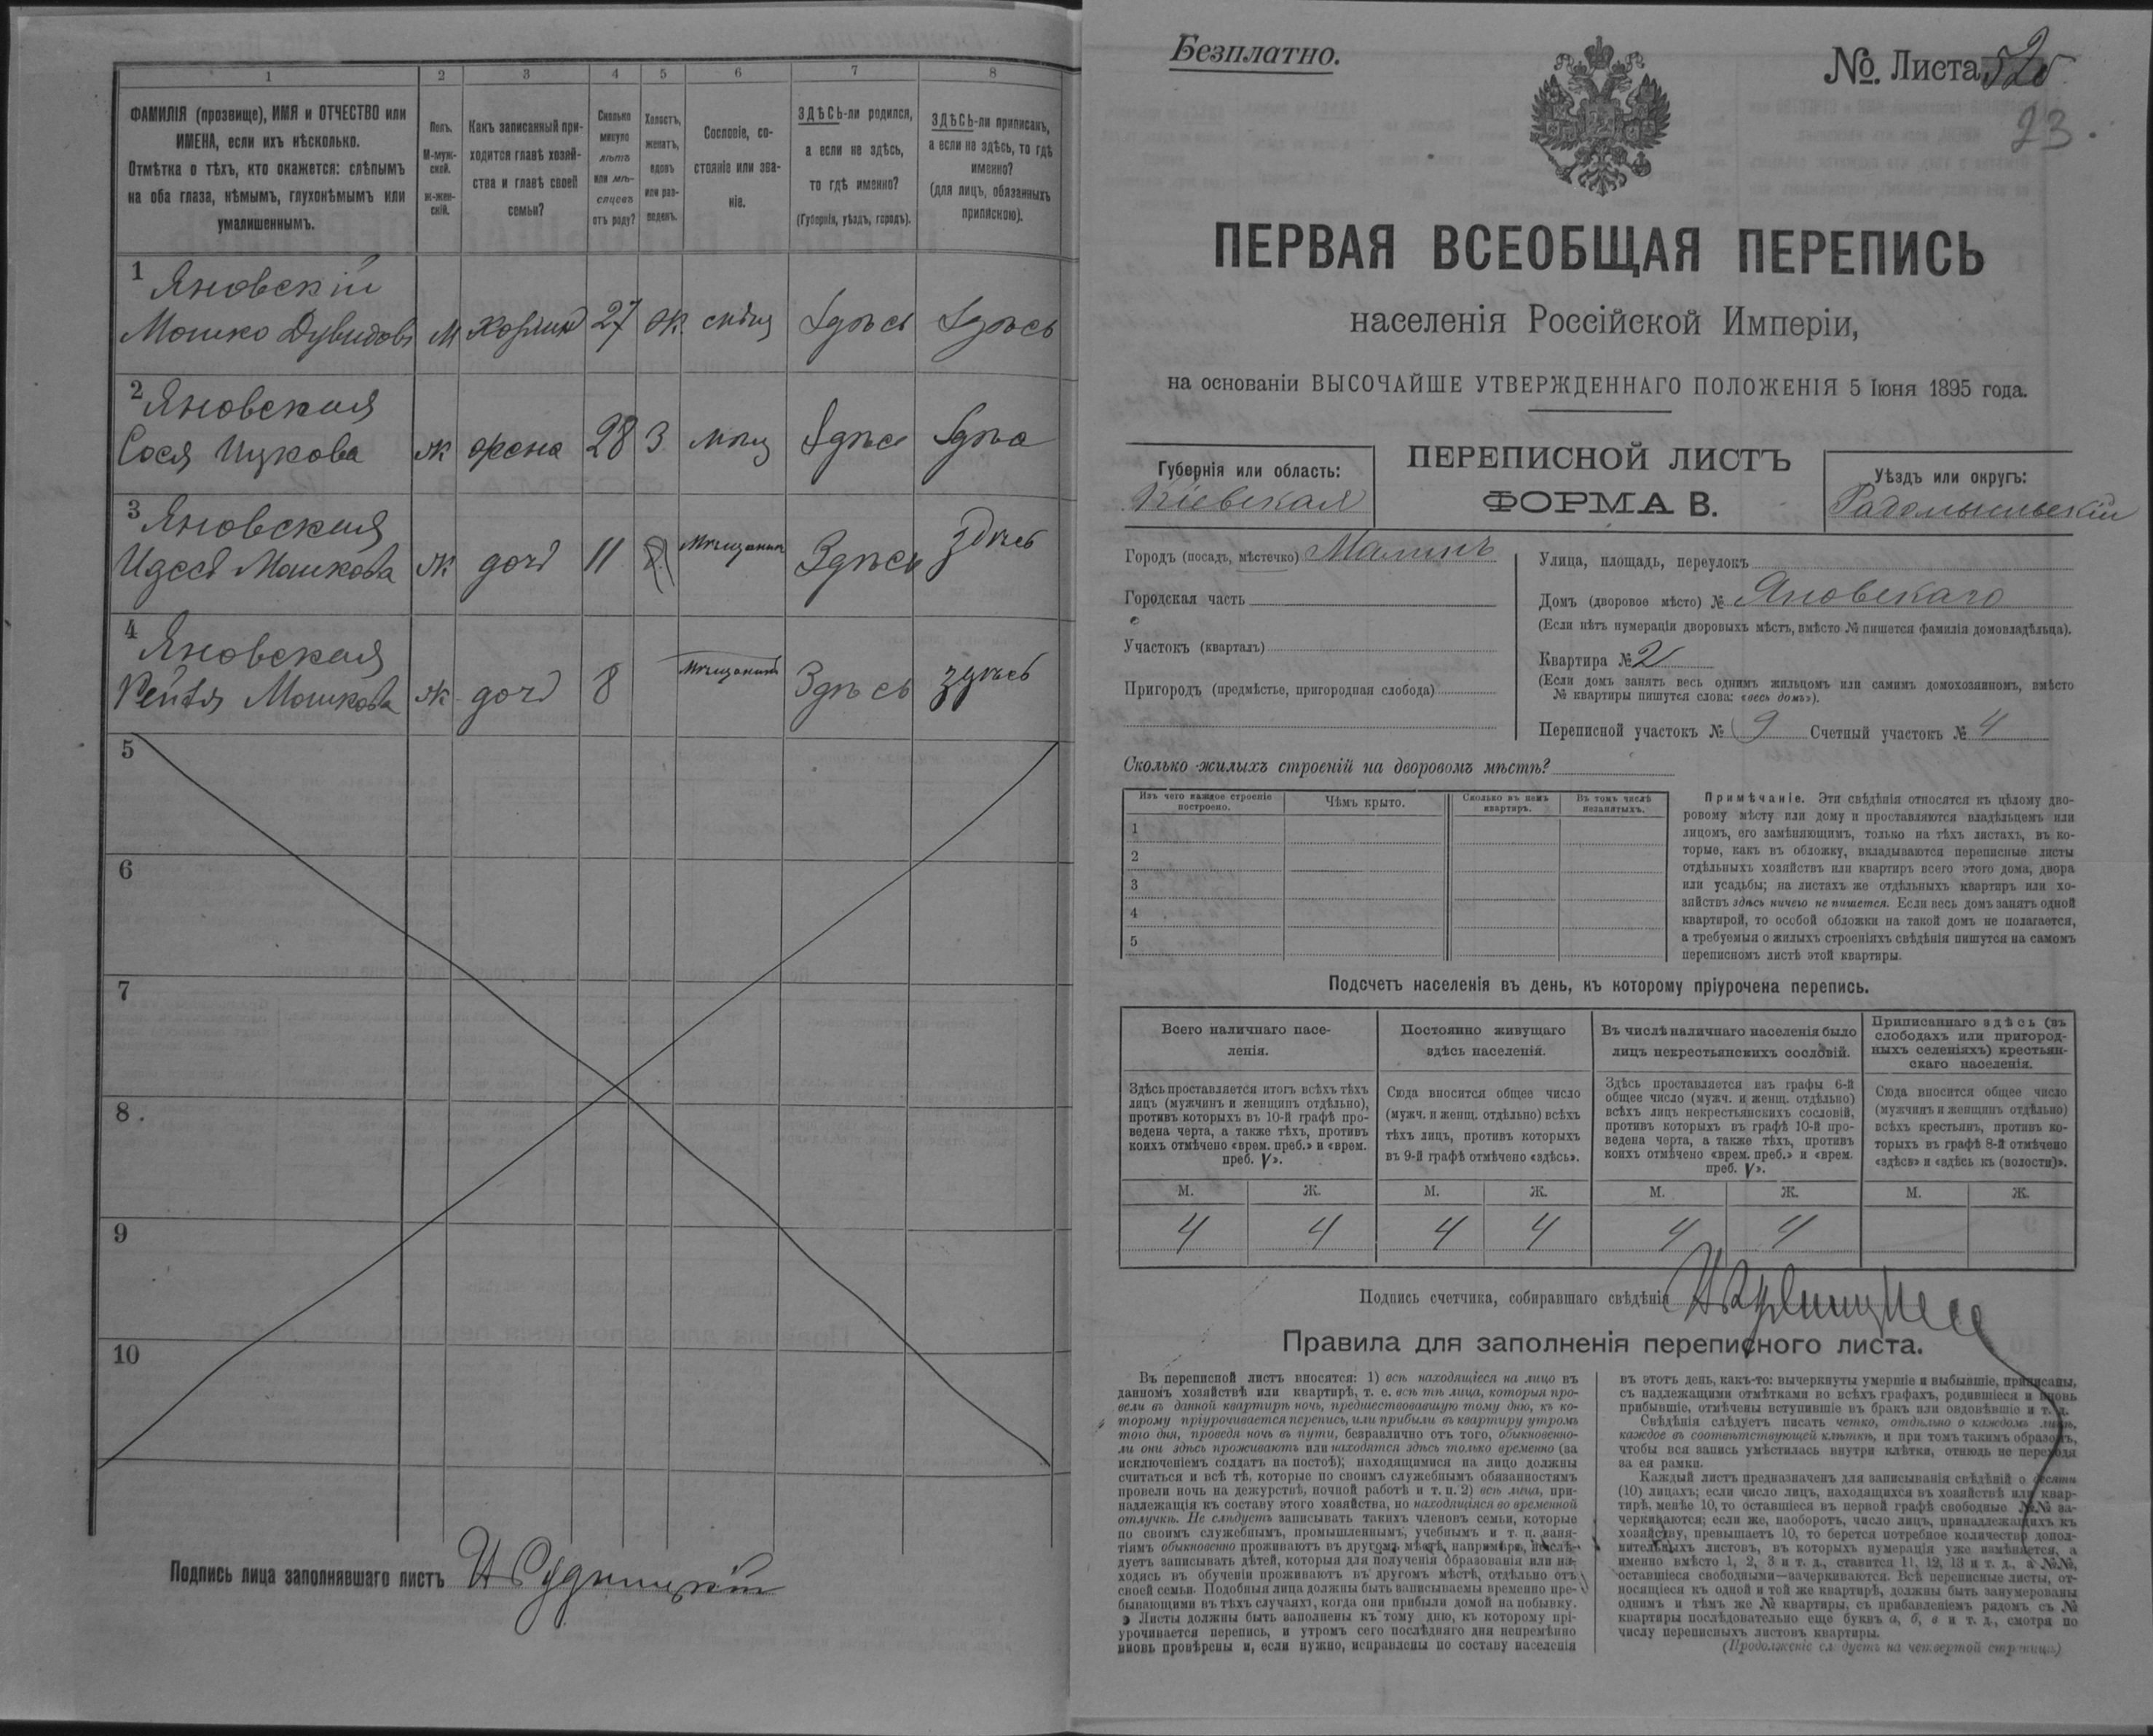 1 2 3 4 5 6 7 8
ФАМИЛІЯ (прозвище), ИМЯ и ОТЧЕСТВО или
ИМЕНА, если ихъ нѣсколько.
Отмѣтка о тѣхъ, кто окажется: слѣпымъ
на оба глаза, нѣмымъ, глухонѣмымъ или
умалишеннымъ.
Полъ.
М-муж-
ской.
Ж-жен-
скій.
Какъ записанный при-
ходится главѣ хозяй-
ства и главѣ своей
семьи?
Сколько
минуло
лѣтъ
или мѣ-
сяцевъ
отъ роду?
Холостъ,
женатъ,
вдовъ
или раз-
веденъ.
Сословіе, со-
стояніе или зва-
ніе.
ЗДѢСЬ-ли родился,
а если не здѣсь,
то гдѣ именно?
(Губернія, уѣздъ, городъ).
ЗДѢСЬ-ли приписанъ,
а если не здѣсь, то гдѣ
именно?
(для лицъ, обязанныхъ
припискою).
1 Яновскій
Мошко Дувидовъ М 27 Ж. Здѣсь Здѣсь
2 Яновская
Сося Ицкова Ж жена 28 З мѣщ Здѣсь
3 Яновская
Идеся Мошкова Ж дочь 11 Здѣсь здѣсь
4 Яновская
Рейзя Мошкова Ж дочь 8 Здѣсь здѣсь
5
6
7
8
9
10
Подпись лица заполнявшаго листъ
Безплатно.
№ Листа
23.
ПЕРВАЯ ВСЕОБЩАЯ ПЕРЕПИСЬ
населенія Россійской Имперіи,
на основаніи ВЫСОЧАЙШЕ УТВЕРЖДЕННАГО ПОЛОЖЕНІЯ 5 Іюня 1895 года.
Губернія или область:
Кіевская
ПЕРЕПИСНОЙ ЛИСТЪ
ФОРМА В.
Уѣздъ или округъ:
Радомысльскій
Городъ (посадъ, мѣстечко) Малинъ
Городская часть
Участокъ (кварталъ)
Пригородъ (предмѣстье, пригородная слобода)
Улица, площадь, переулокъ
Домъ (дворовое мѣсто) № Яновскаго
(Если нѣтъ нумераціи дворовыхъ мѣстъ, вмѣсто № пишется фамилія домовладѣльца).
Квартира № 2
(Если домъ занятъ весь однимъ жильцомъ или самимъ домохозяиномъ, вмѣсто
№ квартиры пишутся слова: «весь домъ»).
Переписной участокъ № 9 Счетный участокъ № 4
Сколько жилыхъ строеній на дворовомъ мѣстѣ?
Изъ чего каждое строеніе
построено.
Чѣмъ крыто.
Сколько въ немъ
квартиръ.
Въ томъ числѣ
незанятыхъ.
1
2
3
4
5
Примѣчаніе. Эти свѣдѣнія относятся къ цѣлому дво-
ровому мѣсту или дому и проставляются владѣльцемъ или
лицомъ, его замѣняющимъ, только на тѣхъ листахъ, въ ко-
торые, какъ въ обложку, вкладываются переписные листы
отдѣльныхъ хозяйствъ или квартиръ всего этого дома, двора
или усадьбы; на листахъ же отдѣльныхъ квартиръ или хо-
зяйствъ здѣсь ничего не пишется. Если весь домъ занятъ одной
квартирой, то особой обложки на такой домъ не полагается,
а требуемыя о жилыхъ строеніяхъ свѣдѣнія пишутся на самомъ
переписномъ листѣ этой квартиры.
Подсчетъ населенія въ день, къ которому пріурочена перепись.
Всего наличнаго насе-
ленія.
Здѣсь проставляется итогъ всѣхъ тѣхъ
лицъ (мужчинъ и женщинъ отдѣльно),
противъ которыхъ въ 10-й графѣ про-
ведена черта, а также тѣхъ, противъ
коихъ отмѣчено «врем. преб.» и «врем.
преб. V».
Постоянно живущаго
здѣсь населенія.
Сюда вносится общее число
(мужч. и женщ. отдѣльно) всѣхъ
тѣхъ лицъ, противъ которыхъ
въ 9-й графѣ отмѣчено «здѣсь».
Въ числѣ наличнаго населенія было
лицъ некрестьянскихъ сословій.
Здѣсь проставляется изъ графы 6-й
общее число (мужч. и женщ. отдѣльно)
всѣхъ лицъ некрестьянскихъ сословій,
противъ которыхъ въ графѣ 10-й про-
ведена черта, а также тѣхъ, противъ
коихъ отмѣчено «врем. преб.» и «врем.
преб. V».
Приписаннаго здѣсь (въ
слободахъ или пригород-
ныхъ селеніяхъ) крестьян-
скаго населенія.
Сюда вносится общее число
(мужчинъ и женщинъ отдѣльно)
всѣхъ крестьянъ, противъ ко-
торыхъ въ графѣ 8-й отмѣчено
«здѣсь» и «здѣсь къ (волости)».
М. Ж. М. Ж. М. Ж. М. Ж.
4 4 4 4 4 4
Подпись счетчика, собиравшаго свѣдѣнія
Правила для заполненія переписного листа.
Въ переписной листъ вносятся: 1) всѣ находящіеся на лицо въ
данномъ хозяйствѣ или квартирѣ, т. е. всѣ тѣ лица, которыя про-
вели въ данной квартирѣ ночь, предшествовавшую тому дню, къ ко-
торому пріурочивается перепись, или прибыли въ квартиру утромъ
того дня, проведя ночь въ пути, безразлично отъ того, обыкновенно-
ли они здѣсь проживаютъ или находятся здѣсь только временно (за
исключеніемъ солдатъ на постоѣ); находящимися на лицо должны
считаться и всѣ тѣ, которые по своимъ служебнымъ обязанностямъ
провели ночь на дежурствѣ, ночной работѣ и т. п. 2) всѣ лица, при-
надлежащія къ составу этого хозяйства, но находящіяся во временной
отлучкѣ. Не слѣдуетъ записывать такихъ членовъ семьи, которые
по своимъ служебнымъ, промышленнымъ, учебнымъ и т. п. заня-
тіямъ обыкновенно проживаютъ въ другомъ мѣстѣ, напримѣръ, не слѣ-
дуетъ записывать дѣтей, которыя для полученія образованія или на-
ходясь въ обученіи проживаютъ въ другомъ мѣстѣ, отдѣльно отъ
своей семьи. Подобныя лица должны быть записываемы временно пре-
бывающими въ тѣхъ случаяхъ, когда они прибыли домой на побывку.
Листы должны быть заполнены къ тому дню, къ которому прі-
урочивается перепись, и утромъ сего послѣдняго дня непремѣнно
вновь провѣрены и, если нужно, исправлены по составу населенія
въ этотъ день, какъ-то: вычеркнуты умершіе и выбывшіе, приписаны,
съ надлежащими отмѣтками во всѣхъ графахъ, родившіеся и вновь
прибывшіе, отмѣчены вступившіе въ бракъ или овдовѣвшіе и т. д.
Свѣдѣнія слѣдуетъ писать четко, отдѣльно о каждомъ лицѣ,
каждое въ соотвѣтствующей клѣткѣ, и при томъ такимъ образомъ,
чтобы вся запись умѣстилась внутри клѣтки, отнюдь не переходя
за ея рамки.
Каждый листъ предназначенъ для записыванія свѣдѣній о десяти
(10) лицахъ; если число лицъ, находящихся въ хозяйствѣ или квар-
тирѣ, менѣе 10, то оставшіеся въ первой графѣ свободные №№ за-
черкиваются; если же, наоборотъ, число лицъ, принадлежащихъ къ
хозяйству, превышаетъ 10, то берется потребное количество допол-
нительныхъ листовъ, въ которыхъ нумерація уже измѣняется, а
именно вмѣсто 1, 2, 3 и т. д., ставится 11, 12, 13 и т. д., а №№,
оставшіеся свободными—зачеркиваются. Всѣ переписные листы, от-
носящіеся къ одной и той же квартирѣ, должны быть занумерованы
однимъ и тѣмъ же № квартиры, съ прибавленіемъ рядомъ съ №
квартиры послѣдовательно еще буквъ а, б, в и т. д., смотря по
числу переписныхъ листовъ квартиры.
(Продолженіе слѣдуетъ на четвертой страницѣ)